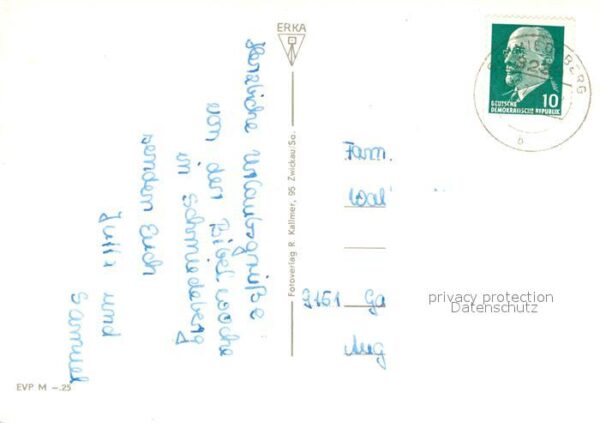 ERKA
Herzliche Urlaubsgrüße
von der Bibelwoche
in Schmiedeberg
senden Euch
und
Samuel
Fotoverlag R. Kallmer, 95 Zwickau/Sa.
EVP M -.25
10
DEUTSCHE
DEMOKRATISCHE REPUBLIK
b
Fam.
Wal
9151 Ga
privacy protection
Datenschutz